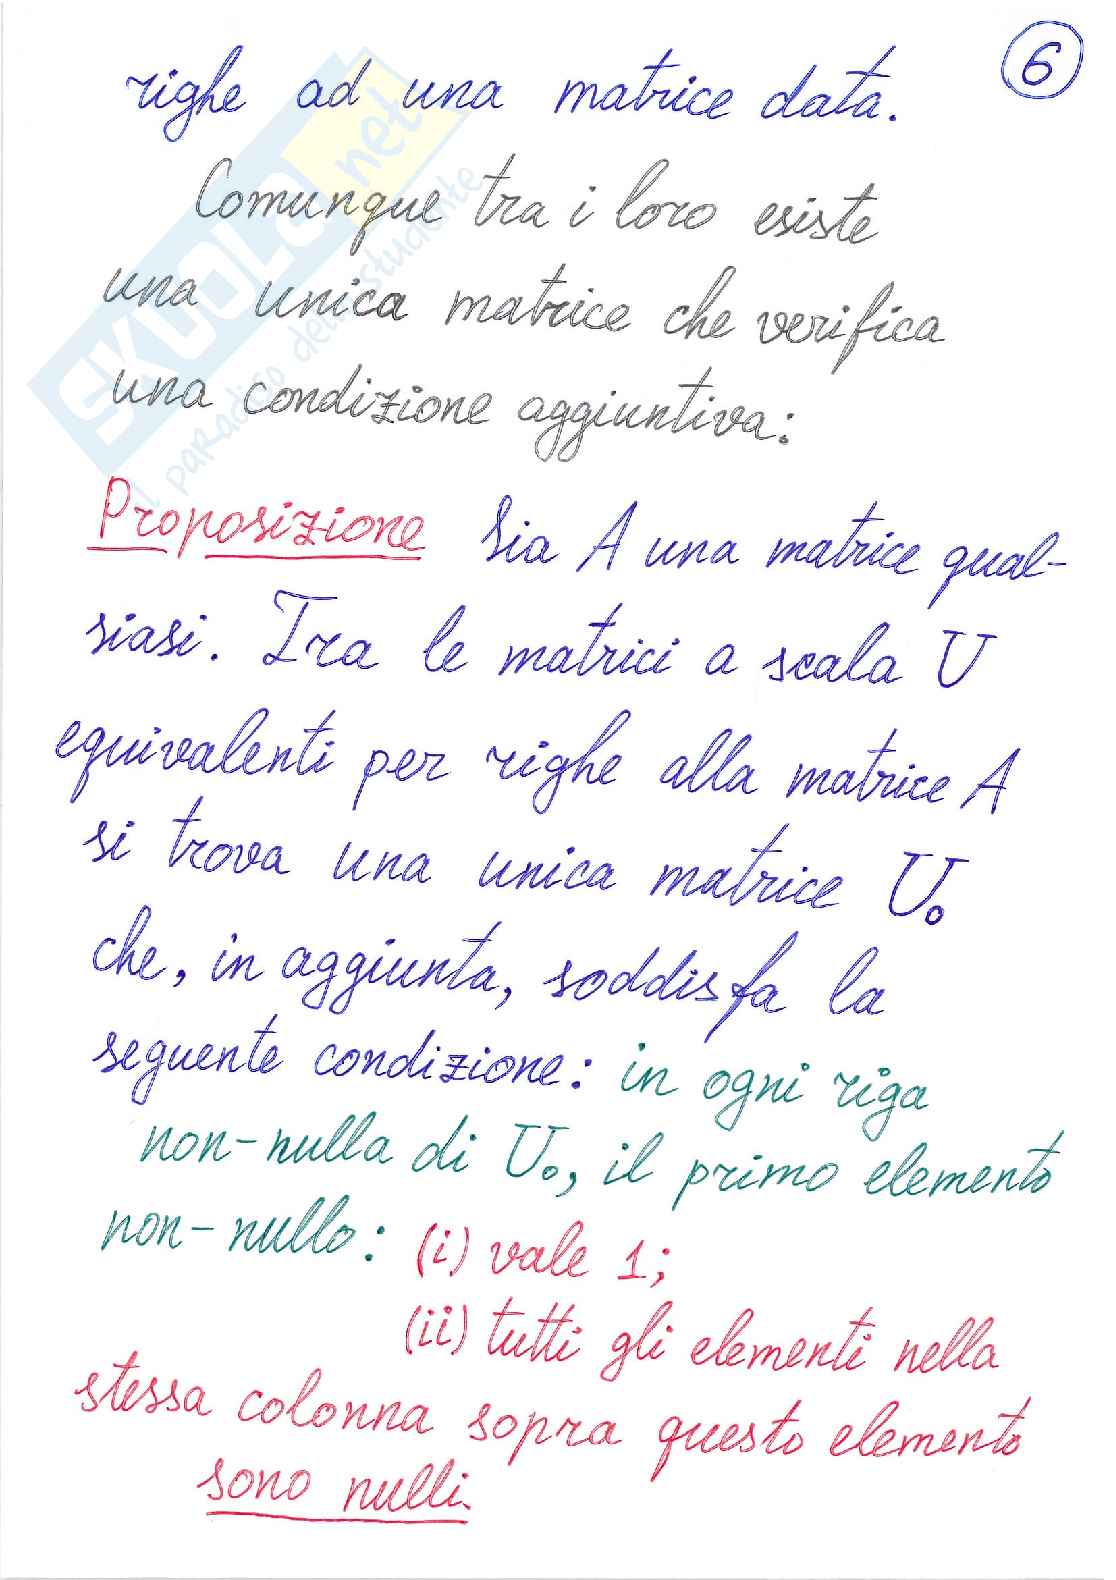 6
righe ad una matrice data.
Comunque tra i loro esiste
una unica matrice che verifica
una condizione aggiuntiva:
Proposizione Sia A una matrice qual-
siasi. Tra le matrici a scala U
equivalenti per righe alla matrice A
si trova una unica matrice U₀
che, in aggiunta, soddisfa la
seguente condizione: in ogni riga
non-nulla di U₀, il primo elemento
non-nullo: (i) vale 1;
(ii) tutti gli elementi nella
stessa colonna sopra questo elemento
sono nulli.
SKUOLA.net
il paradiso dello studente